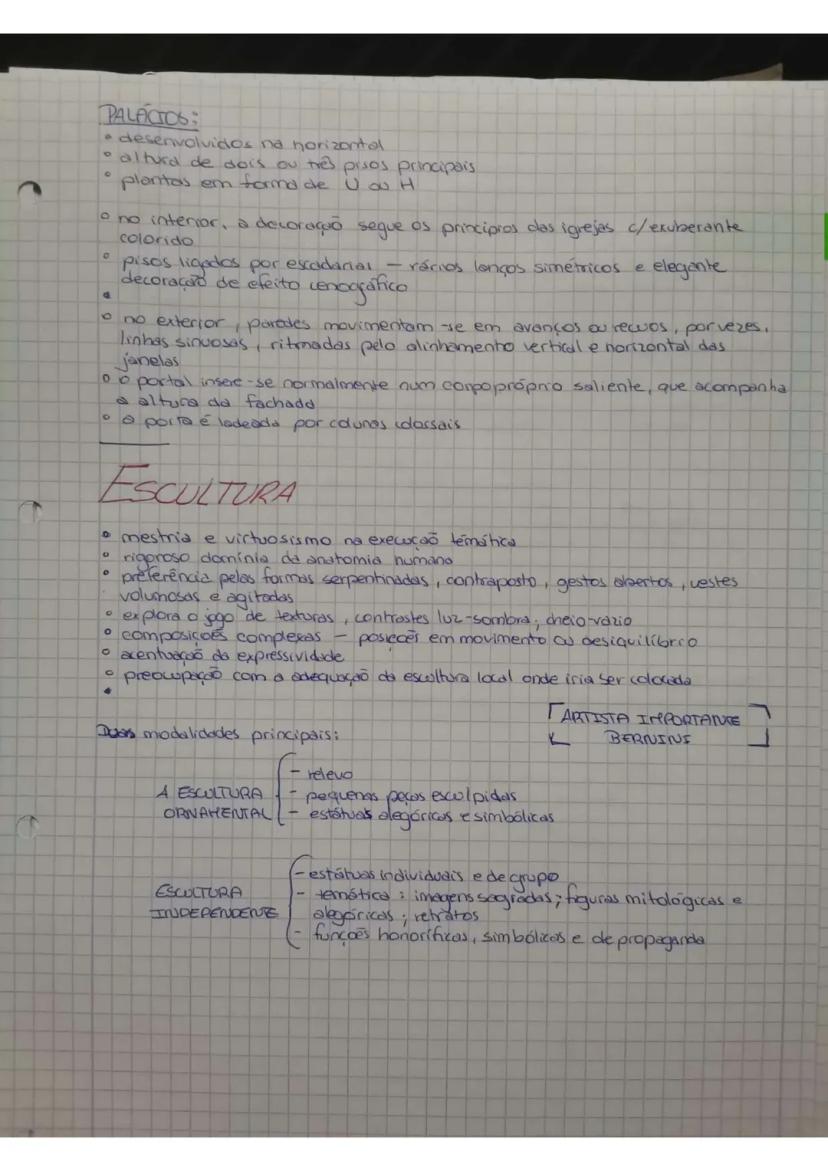 PALÁCIOS:
• desenvolvidos na horizontal
• altura de dois ou três pisos principais
• plantas em forma de U ou H
• no interior, a decoração segue os princípios das igrejas c/exuberante
colorido
• pisos ligados por escadarias – vários lanços simétricos e elegante
decoração de efeito cenográfico
•
• no exterior, paredes movimentam-se em avanços ou recuos, por vezes,
linhas sinuosas, ritmadas pelo alinhamento vertical e horizontal das
janelas
• o portal insere-se normalmente num corpo próprio saliente, que acompanha
a altura da fachada
• a porta é ladeada por colunas colossais
ESCULTURA
• mestria e virtuosismo na execução temática
• rigoroso domínio da anatomia humana
• preferência pelas formas serpentinadas, contraposto, gestos abertos, vestes
volumosas e agitadas
• explora o jogo de texturas, contrastes luz-sombra; cheio-vazio
• composições complexas – posições em movimento ou desiquilíbrio
• acentuação da expressividade
• preocupação com a adequação da escultura local onde iria ser colocada
•
ARTISTA IMPORTANTE
BERNINI
Duas modalidades principais:
- relevo
A ESCULTURA - pequenas peças esculpidas
ORNAMENTAL - estátuas alegóricas e simbólicas
- estátuas individuais e de grupo
ESCULTURA - temática: imagens sagradas; figuras mitológicas e
INDEPENDENTE alegóricas; retratos
- funções honoríficas, simbólicas e de propaganda